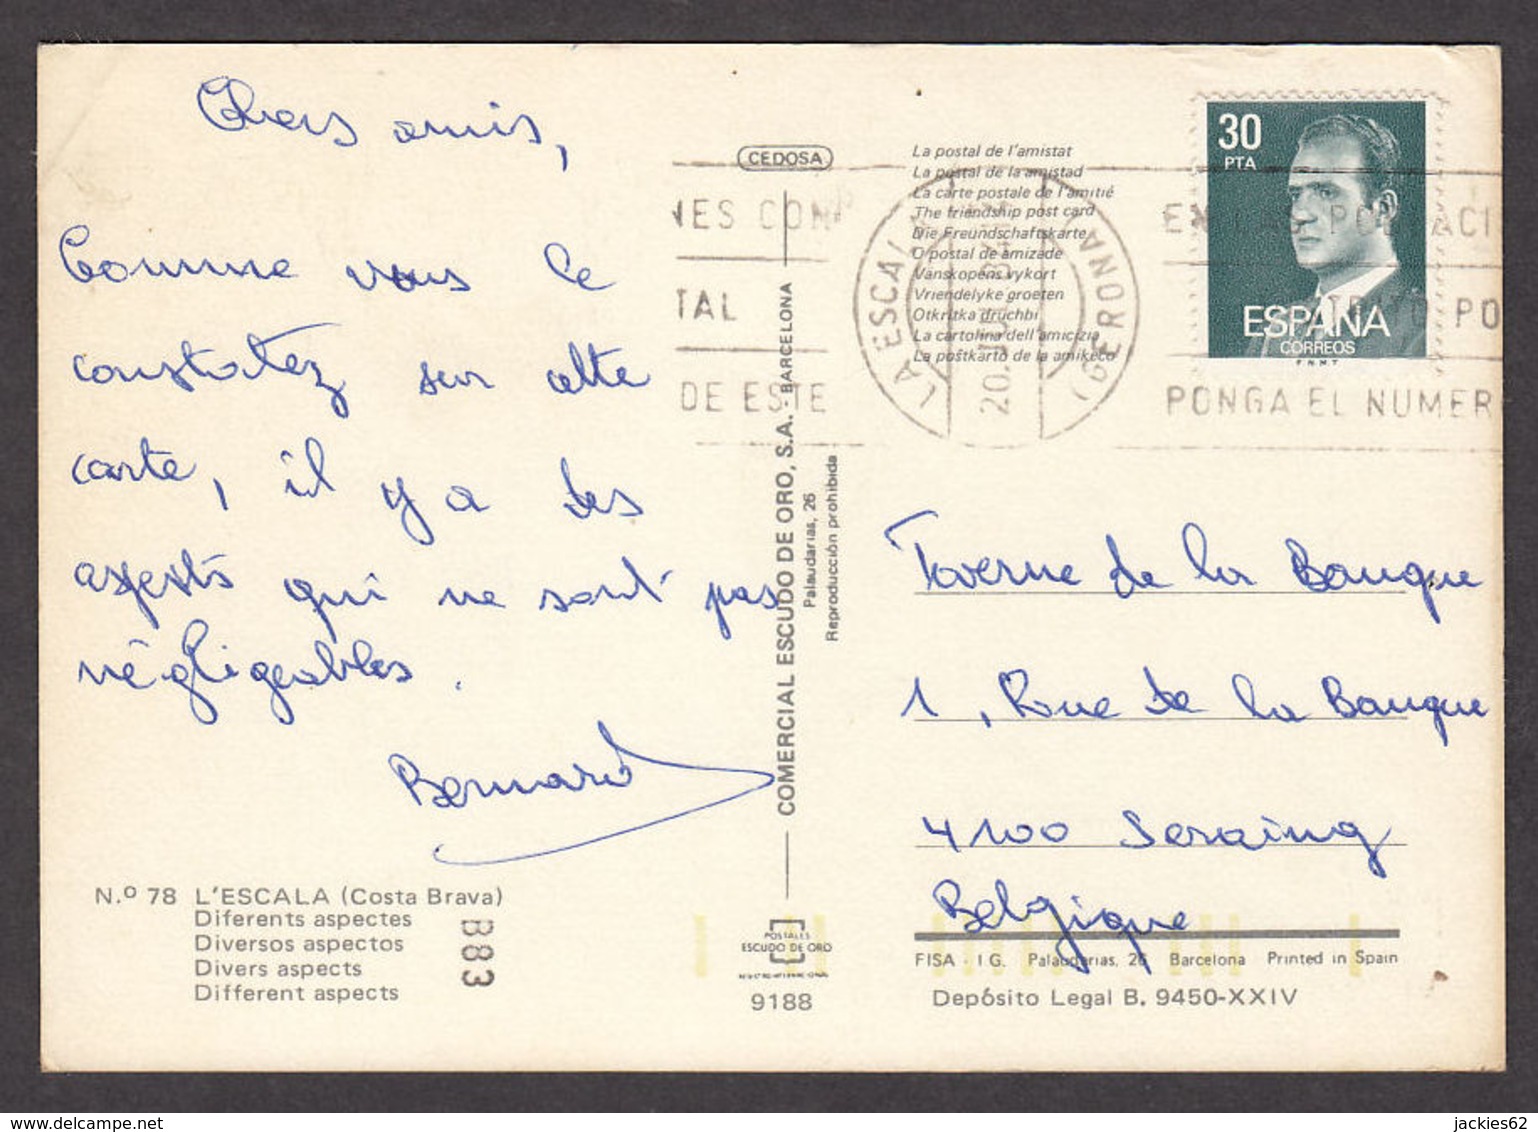 Chers amis,
Comme vous le
constatez sur cette
carte, il y a des
aspects qui ne sont pas
négligeables.
Bernard
N.º 78 L'ESCALA (Costa Brava)
Diferents aspectes
Diversos aspectos
Divers aspects
Different aspects
B83
CEDOSA
COMERCIAL ESCUDO DE ORO, S.A. - BARCELONA
Palaudarias, 26
Reproducción prohibida
POSTALES
ESCUDO DE ORO
9188
La postal de l'amistat
La postal de la amistad
La carte postale de l'amitié
The friendship post card
Die Freundschaftskarte
O postal de amizade
Vanskopens vykort
Vriendelyke groeten
Otkritka druchbi
La cartolina dell'amicizia
La poŝtkarto de la amikeco
LA ESCALA
(GERONA)
TAL
DE ESTE
PONGA EL NUMER
30
PTA
ESPAÑA
CORREOS
F.N.M.T
Taverne de la Banque
1, Rue de la Banque
4100 Seraing
Belgique
FISA - I G. Palaudarias, 26 Barcelona Printed in Spain
Depósito Legal B. 9450-XXIV
jackies62